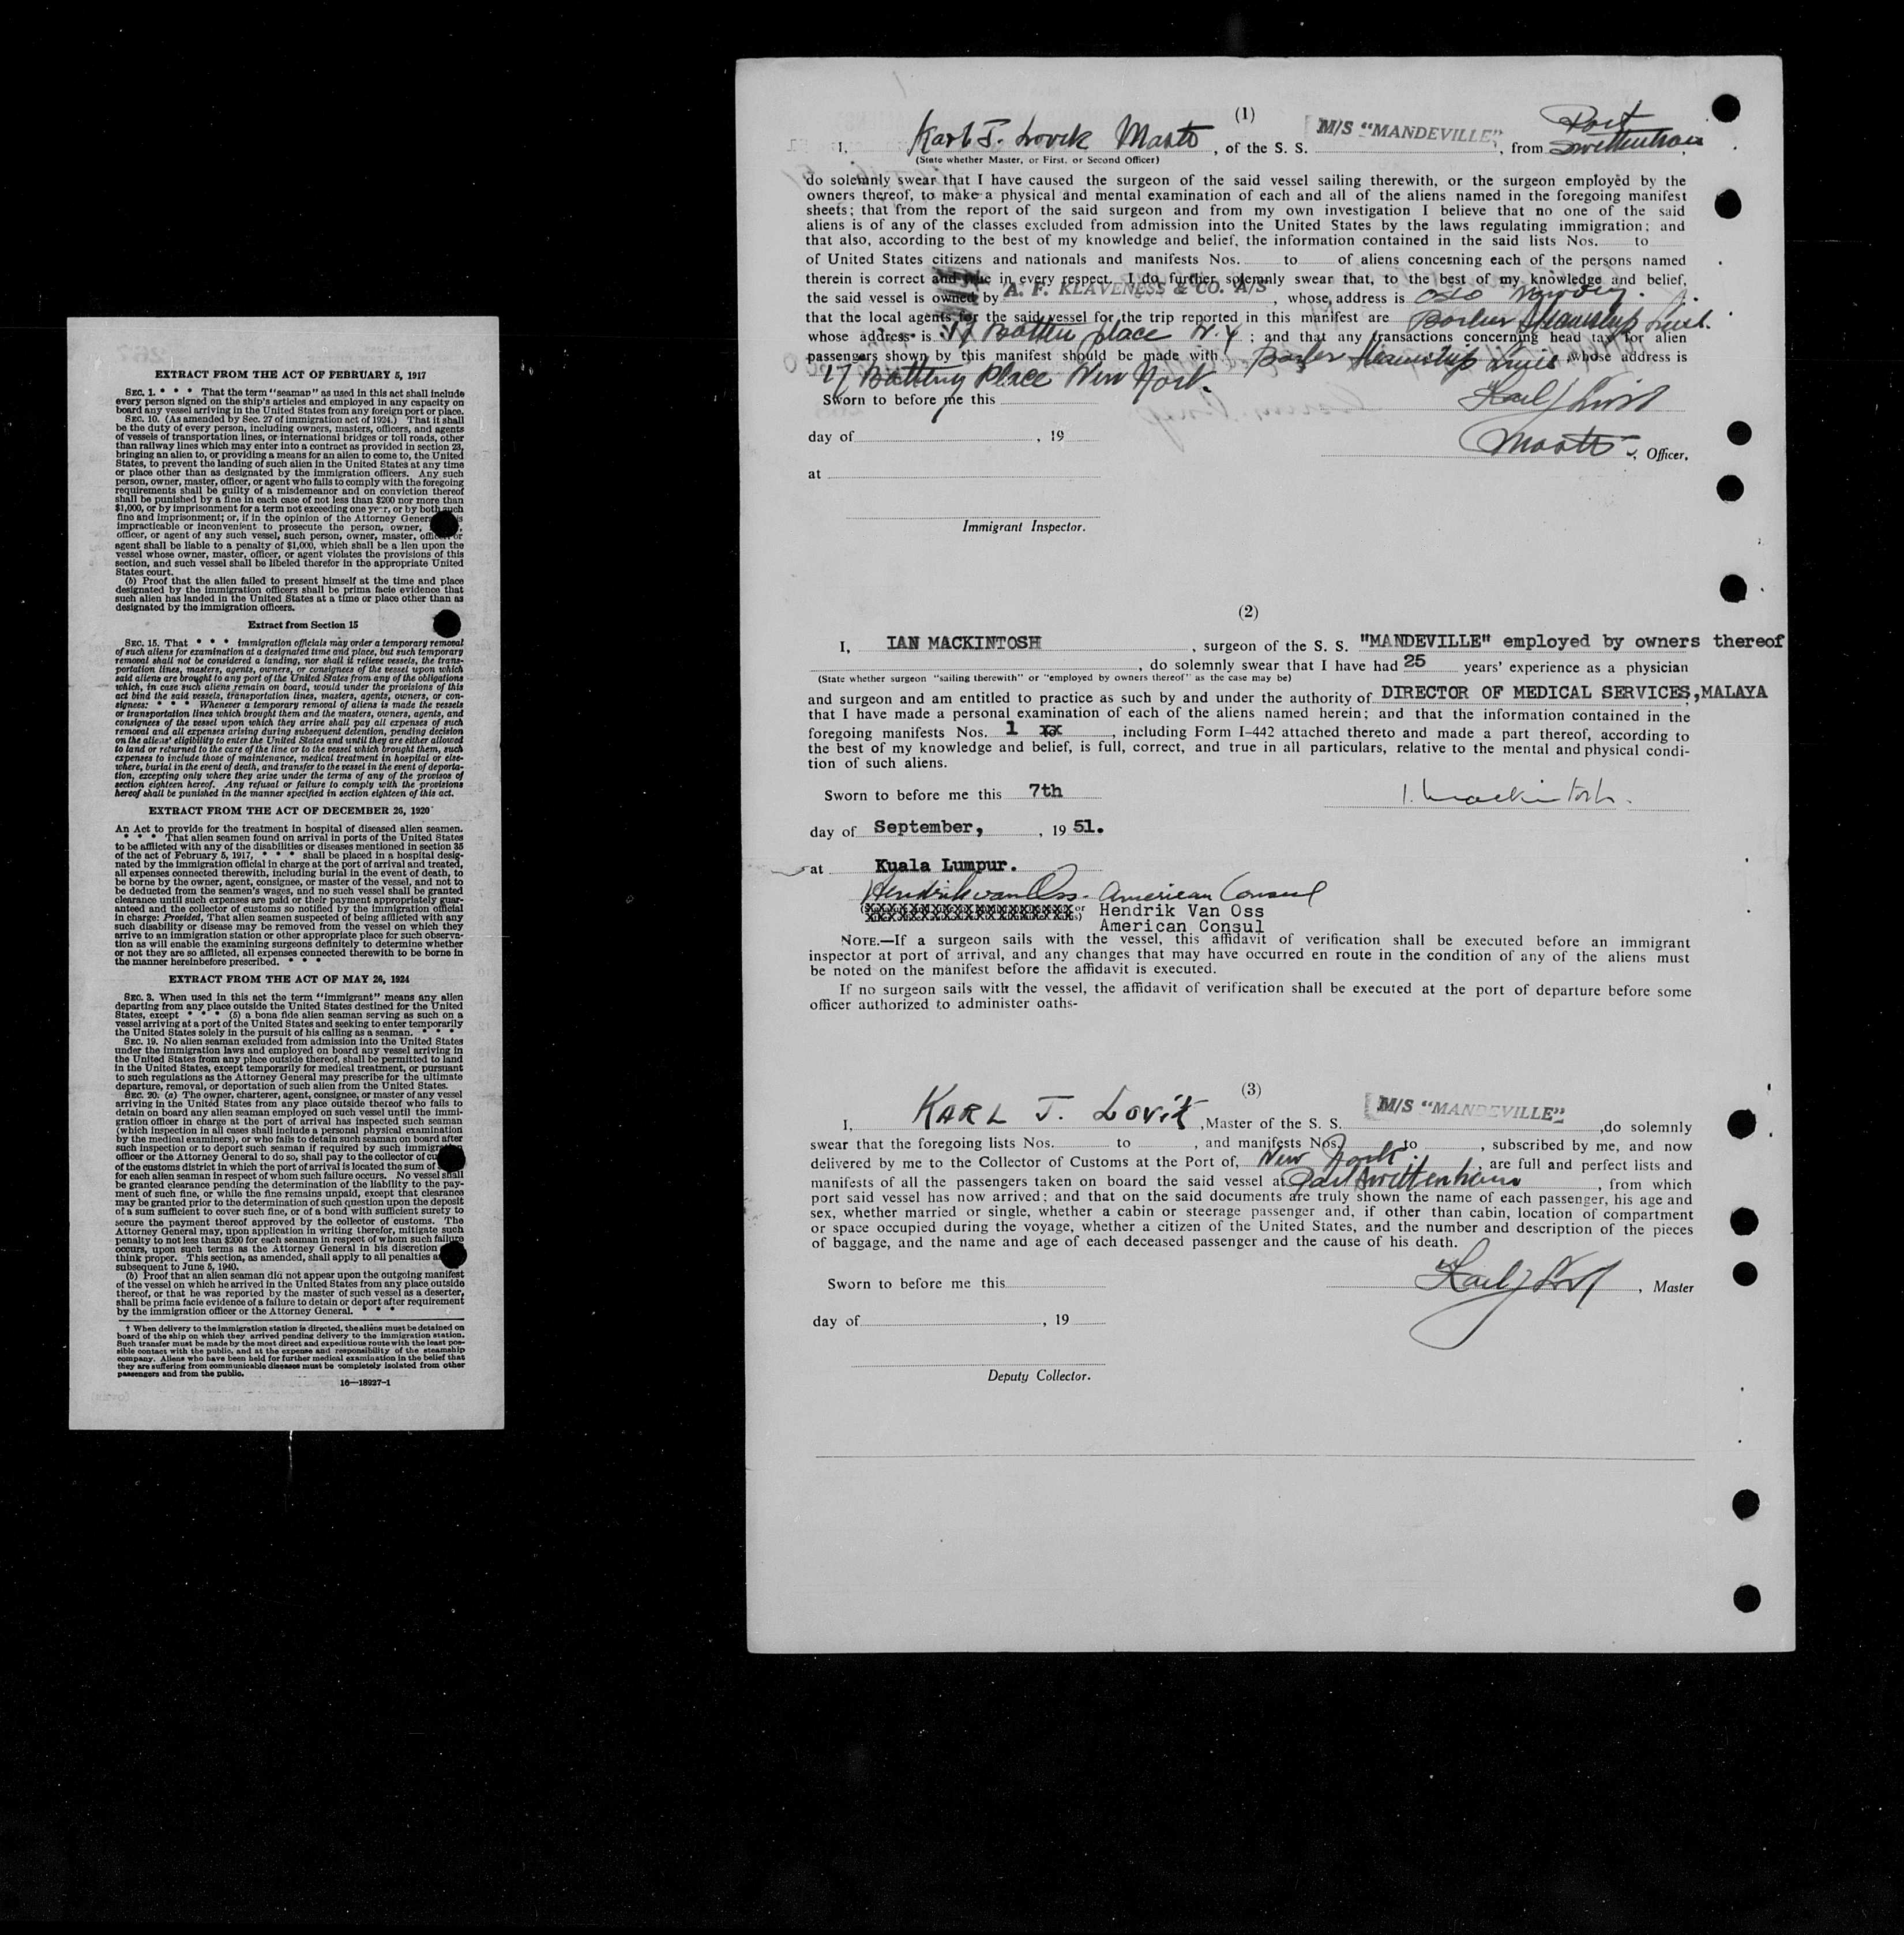 EXTRACT FROM THE ACT OF FEBRUARY 5, 1917
SEC. 1. * * * That the term "seaman" as used in this act shall include
every person signed on the ship's articles and employed in any capacity on
board any vessel arriving in the United States from any foreign port or place.
SEC. 10. (As amended by Sec. 27 of immigration act of 1924.) That it shall
be the duty of every person, including owners, masters, officers, and agents
of vessels of transportation lines, or international bridges or toll roads, other
than railway lines which may enter into a contract as provided in section 23,
bringing an alien to, or providing a means for an alien to come to, the United
States, to prevent the landing of such alien in the United States at any time
or place other than as designated by the immigration officers. Any such
person, owner, master, officer, or agent who fails to comply with the foregoing
requirements shall be guilty of a misdemeanor and on conviction thereof
shall be punished by a fine in each case of not less than $200 nor more than
$1,000, or by imprisonment for a term not exceeding one year, or by both such
fine and imprisonment; or, if in the opinion of the Attorney General is
impracticable or inconvenient to prosecute the person, owner,
officer, or agent of any such vessel, such person, owner, master, officer or
agent shall be liable to a penalty of $1,000, which shall be a lien upon the
vessel whose owner, master, officer, or agent violates the provisions of this
section, and such vessel shall be libeled therefor in the appropriate United
States court.
(b) Proof that the alien failed to present himself at the time and place
designated by the immigration officers shall be prima facie evidence that
such alien has landed in the United States at a time or place other than as
designated by the immigration officers.
Extract from Section 15
SEC. 15. That * * * immigration officials may order a temporary removal
of such aliens for examination at a designated time and place, but such temporary
removal shall not be considered a landing, nor shall it relieve vessels, the trans-
portation lines, masters, agents, owners, or consignees of the vessel upon which
said aliens are brought to any port of the United States from any of the obligations
which, in case such aliens remain on board, would under the provisions of this
act bind the said vessels, transportation lines, masters, agents, owners, or con-
signees: * * * Whenever a temporary removal of aliens is made the vessels
or transportation lines which brought them and the masters, owners, agents, and
consignees of the vessel upon which they arrive shall pay all expenses of such
removal and all expenses arising during subsequent detention, pending decision
on the aliens' eligibility to enter the United States and until they are either allowed
to land or returned to the care of the line or to the vessel which brought them, such
expenses to include those of maintenance, medical treatment in hospital or else-
where, burial in the event of death, and transfer to the vessel in the event of deporta-
tion, excepting only where they arise under the terms of any of the provisos of
section eighteen hereof. Any refusal or failure to comply with the provisions
hereof shall be punished in the manner specified in section eighteen of this act.
EXTRACT FROM THE ACT OF DECEMBER 26, 1920
An Act to provide for the treatment in hospital of diseased alien seamen.
* * * That alien seamen found on arrival in ports of the United States
to be afflicted with any of the disabilities or diseases mentioned in section 35
of the act of February 5, 1917, * * * shall be placed in a hospital desig-
nated by the immigration official in charge at the port of arrival and treated,
all expenses connected therewith, including burial in the event of death, to
be borne by the owner, agent, consignee, or master of the vessel, and not to
be deducted from the seamen's wages, and no such vessel shall be granted
clearance until such expenses are paid or their payment appropriately guar-
anteed and the collector of customs so notified by the immigration official
in charge: Provided, That alien seamen suspected of being afflicted with any
such disability or disease may be removed from the vessel on which they
arrive to an immigration station or other appropriate place for such observa-
tion as will enable the examining surgeons definitely to determine whether
or not they are so afflicted, all expenses connected therewith to be borne in
the manner hereinbefore prescribed. * * *
EXTRACT FROM THE ACT OF MAY 26, 1924
SEC. 3. When used in this act the term "immigrant" means any alien
departing from any place outside the United States destined for the United
States, except * * * (5) a bona fide alien seaman serving as such on a
vessel arriving at a port of the United States and seeking to enter temporarily
the United States solely in the pursuit of his calling as a seaman. * * *
SEC. 19. No alien seaman excluded from admission into the United States
under the immigration laws and employed on board any vessel arriving in
the United States from any place outside thereof, shall be permitted to land
in the United States, except temporarily for medical treatment, or pursuant
to such regulations as the Attorney General may prescribe for the ultimate
departure, removal, or deportation of such alien from the United States.
SEC. 20. (a) The owner, charterer, agent, consignee, or master of any vessel
arriving in the United States from any place outside thereof who fails to
detain on board any alien seaman employed on such vessel until the immi-
gration officer in charge at the port of arrival has inspected such seaman
(which inspection in all cases shall include a personal physical examination
by the medical examiners), or who fails to detain such seaman on board after
such inspection or to deport such seaman if required by such immigration
officer or the Attorney General to do so, shall pay to the collector of cu
of the customs district in which the port of arrival is located the sum of
for each alien seaman in respect of whom such failure occurs. No vessel shall
be granted clearance pending the determination of the liability to the pay-
ment of such fine, or while the fine remains unpaid, except that clearance
may be granted prior to the determination of such question upon the deposit
of a sum sufficient to cover such fine, or of a bond with sufficient surety to
secure the payment thereof approved by the collector of customs. The
Attorney General may, upon application in writing therefor, mitigate such
penalty to not less than $200 for each seaman in respect of whom such failure
occurs, upon such terms as the Attorney General in his discretion
think proper. This section, as amended, shall apply to all penalties a
subsequent to June 5, 1940.
(b) Proof that an alien seaman did not appear upon the outgoing manifest
of the vessel on which he arrived in the United States from any place outside
thereof, or that he was reported by the master of such vessel as a deserter,
shall be prima facie evidence of a failure to detain or deport after requirement
by the immigration officer or the Attorney General. * * *
† When delivery to the immigration station is directed, the aliens must be detained on
board of the ship on which they arrived pending delivery to the immigration station.
Such transfer must be made by the most direct and expeditious route with the least pos-
sible contact with the public, and at the expense and responsibility of the steamship
company. Aliens who have been held for further medical examination in the belief that
they are suffering from communicable diseases must be completely isolated from other
passengers and from the public.
16—18927-1
(1)
I, Karl J. Lovik Master, of the S. S. M/S "MANDEVILLE", from Port Swettenham
(State whether Master, or First, or Second Officer)
do solemnly swear that I have caused the surgeon of the said vessel sailing therewith, or the surgeon employed by the
owners thereof, to make a physical and mental examination of each and all of the aliens named in the foregoing manifest
sheets; that from the report of the said surgeon and from my own investigation I believe that no one of the said
aliens is of any of the classes excluded from admission into the United States by the laws regulating immigration; and
that also, according to the best of my knowledge and belief, the information contained in the said lists Nos. to
of United States citizens and nationals and manifests Nos. to of aliens concerning each of the persons named
therein is correct and true in every respect. I do further solemnly swear that, to the best of my knowledge and belief,
the said vessel is owned by A. F. KLAVENESS & CO. A/S, whose address is Oslo Norway.
that the local agents for the said vessel for the trip reported in this manifest are Barber Steamship Lines.
whose address is 17 Battery place N.Y; and that any transactions concerning head tax for alien
passengers shown by this manifest should be made with Barber Steamship Lines whose address is
17 Battery Place New York.
Sworn to before me this
Karl J Lovik
day of , 19
Master, Officer.
at
Immigrant Inspector.
(2)
I, IAN MACKINTOSH, surgeon of the S. S. "MANDEVILLE" employed by owners thereof
, do solemnly swear that I have had 25 years' experience as a physician
(State whether surgeon "sailing therewith" or "employed by owners thereof" as the case may be)
and surgeon and am entitled to practice as such by and under the authority of DIRECTOR OF MEDICAL SERVICES, MALAYA
that I have made a personal examination of each of the aliens named herein; and that the information contained in the
foregoing manifests Nos. 1 xx, including Form I-442 attached thereto and made a part thereof, according to
the best of my knowledge and belief, is full, correct, and true in all particulars, relative to the mental and physical condi-
tion of such aliens.
Sworn to before me this 7th
I. Mackintosh.
day of September, , 19 51.
at Kuala Lumpur.
Hendrik van Oss - American Consul
Hendrik Van Oss
American Consul
NOTE.—If a surgeon sails with the vessel, this affidavit of verification shall be executed before an immigrant
inspector at port of arrival, and any changes that may have occurred en route in the condition of any of the aliens must
be noted on the manifest before the affidavit is executed.
If no surgeon sails with the vessel, the affidavit of verification shall be executed at the port of departure before some
officer authorized to administer oaths-
(3)
I, KARL J. Lovik, Master of the S. S. M/S "MANDEVILLE", do solemnly
swear that the foregoing lists Nos. to , and manifests Nos. to , subscribed by me, and now
delivered by me to the Collector of Customs at the Port of, New York. are full and perfect lists and
manifests of all the passengers taken on board the said vessel at Port Swettenham, from which
port said vessel has now arrived; and that on the said documents are truly shown the name of each passenger, his age and
sex, whether married or single, whether a cabin or steerage passenger and, if other than cabin, location of compartment
or space occupied during the voyage, whether a citizen of the United States, and the number and description of the pieces
of baggage, and the name and age of each deceased passenger and the cause of his death.
Sworn to before me this
Karl J Lovik, Master
day of , 19
Deputy Collector.